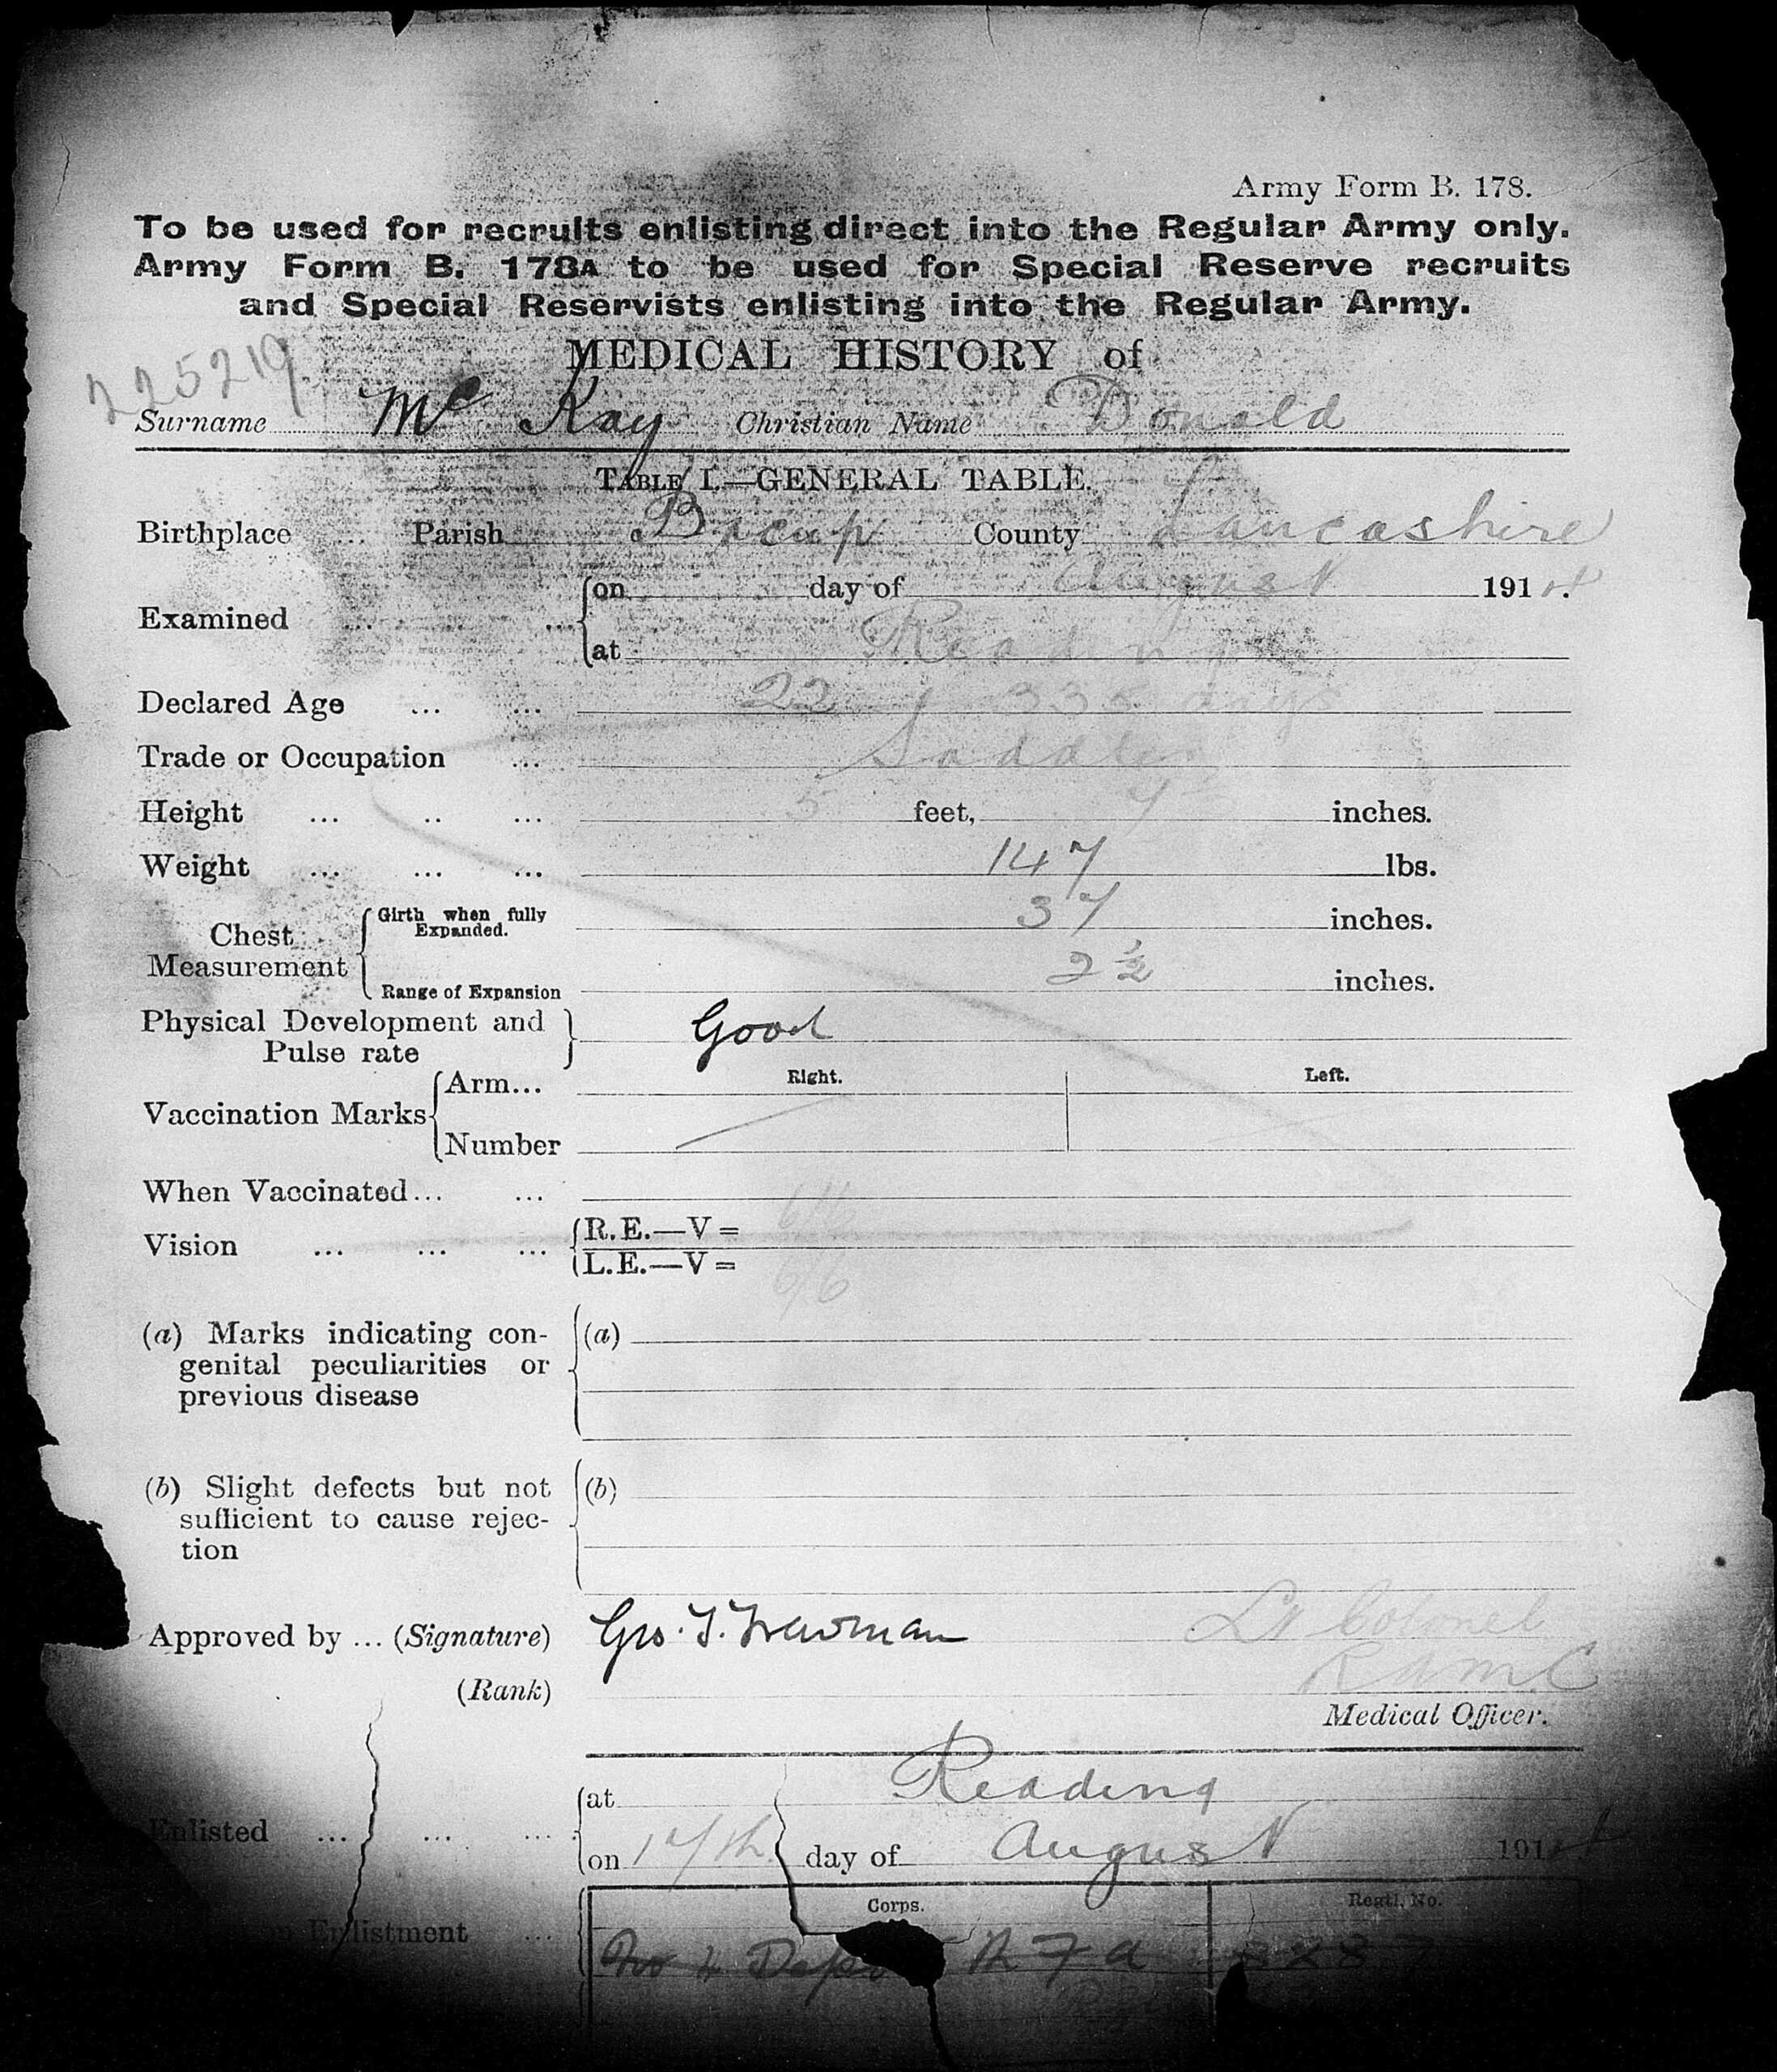 Army Form B. 178.
To be used for recruits enlisting direct into the Regular Army only.
Army Form B. 178A to be used for Special Reserve recruits
and Special Reservists enlisting into the Regular Army.
225219
MEDICAL HISTORY of
Surname Mc Kay Christian Name Donald
TABLE I.—GENERAL TABLE.
Birthplace ... Parish Bacup County Lancashire
Examined ... ... on day of August 1914.
at Reading
Declared Age ... ... 22 335 days
Trade or Occupation ... Saddler
Height ... .. ... 5 feet, inches.
Weight ... ... ... 147 lbs.
Chest Measurement Girth when fully Expanded. 37 inches.
Range of Expansion 2 ½ inches.
Physical Development and Pulse rate Good
Right. Left.
Vaccination Marks Arm...
Number
When Vaccinated... ...
Vision ... ... ... R.E.—V = 6/6
L.E.—V = 6/6
(a) Marks indicating con- (a)
genital peculiarities or
previous disease
(b) Slight defects but not (b)
sufficient to cause rejec-
tion
Approved by ... (Signature) Geo. T. Trewman Lt Colonel
(Rank) RAMC
Medical Officer.
Enlisted ... ... ... at Reading
on 17th day of August 1914
Corps. Regtl. No.
on Enlistment ... No 4 Depot R F A